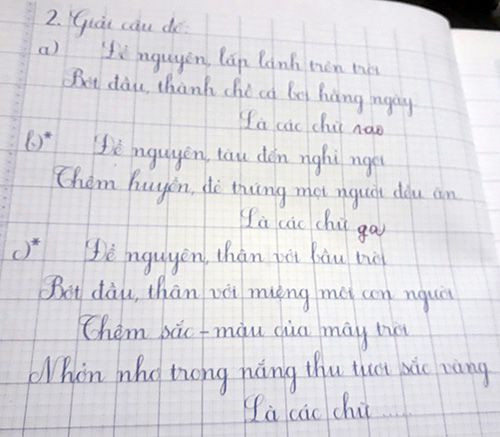 2. Giải câu đố:
a) Để nguyên, lấp lánh trên trời
Bớt đầu, thành chỗ cá bơi hàng ngày
Là các chữ sao
b)* Để nguyên, tàu đến nghỉ ngơi
Thêm huyền, đẻ trứng mọi người đều ăn
Là các chữ ga
c)* Để nguyên, thân với bầu trời
Bớt đầu, thân với miệng mỗi con người
Thêm sắc - màu của mây trời
Nhởn nhơ trong nắng thu tươi sắc vàng
Là các chữ ....